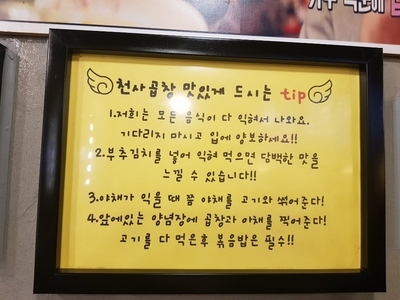 가루 덕분에
천사곱창 맛있게 드시는 tip
1.저희는 모든 음식이 다 익혀서 나와요.
기다리지 마시고 입에 양보하세요!!
2.부추김치를 넣어 익혀 먹으면 담백한 맛을
느낄 수 있습니다!!
3.야채가 익을 때 쯤 야채를 고기와 쌈어준다!
4.앞에있는 양념장에 곱창과 야채를 찍어준다!
고기를 다 먹은후 볶음밥은 필수!!